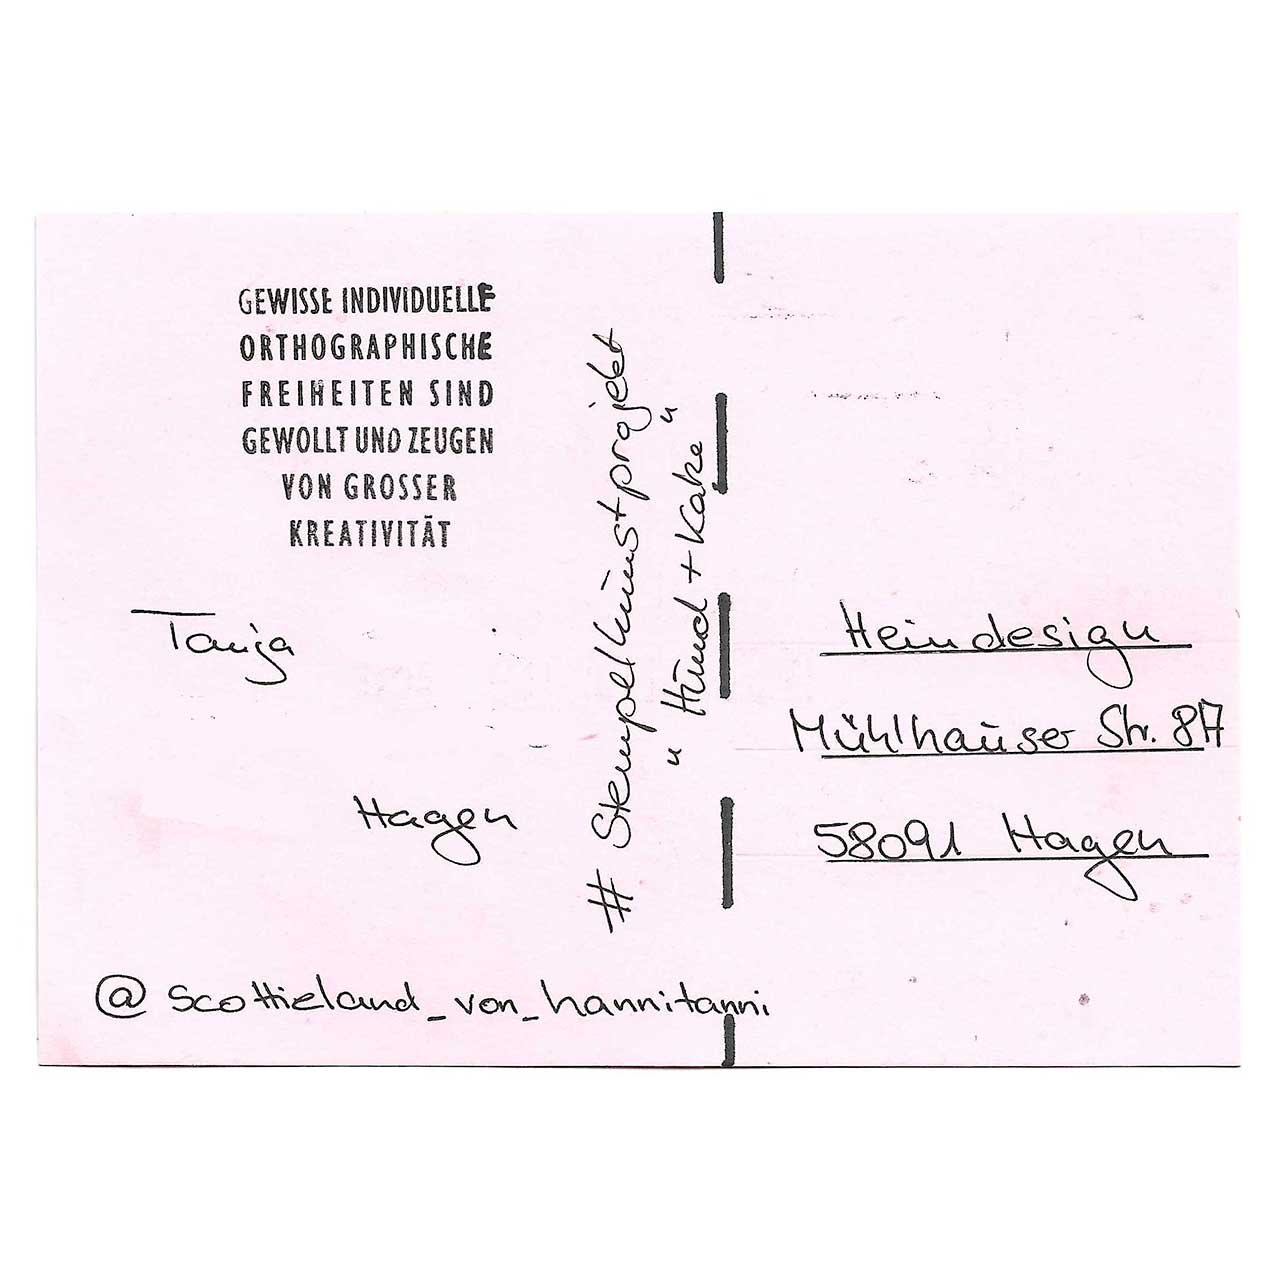 GEWISSE INDIVIDUELLE
ORTHOGRAPHISCHE
FREIHEITEN SIND
GEWOLLT UND ZEUGEN
VON GROSSER
KREATIVITÄT
Tanja
Hagen
@scottieland_von_hannitanni
# Stempelkunstprojekt
"Hund + Katze"
Heindesign
Mühlhauser Str. 87A
58091 Hagen